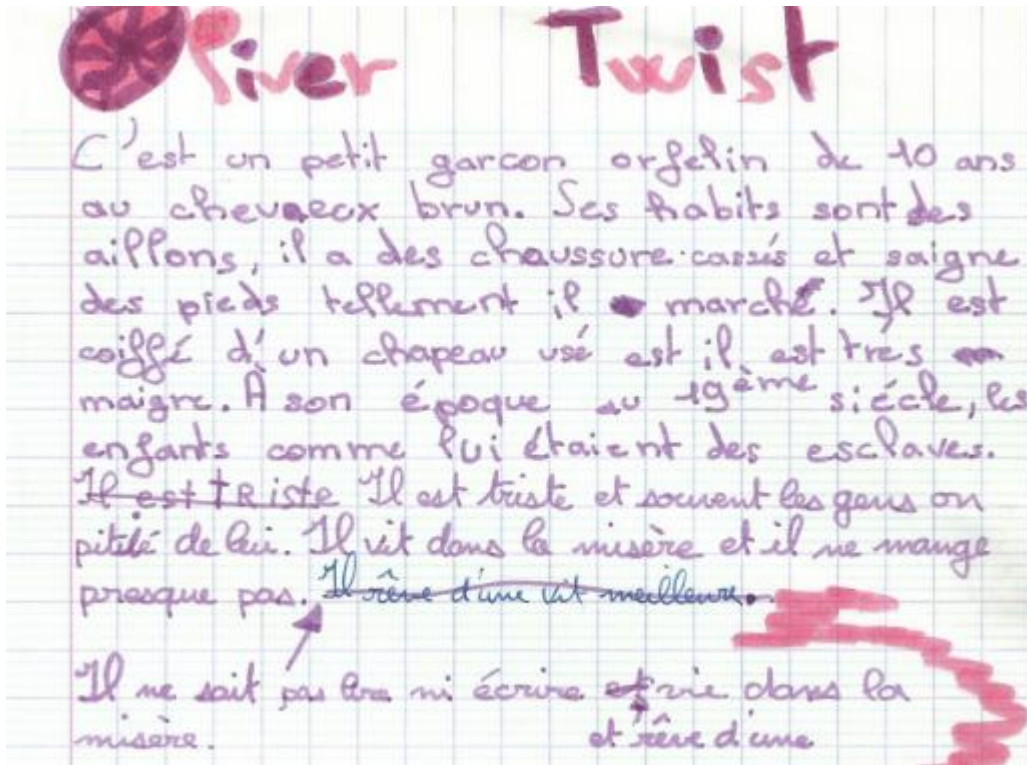 Oliver Twist
C'est un petit garcon orfelin de 10 ans
au cheveux brun. Ses habits sont des
aillons, il a des chaussure cassés et saigne
des pieds tellement il marche. Il est
coiffé d'un chapeau usé est il est très
maigre. À son époque au 19ème siécle, les
enfants comme lui étaient des esclaves.
Il est tRiste Il est triste et souvent les gens on
pitié de lui. Il vit dans la misère et il ne mange
presque pas. Il rêve d'une vit meilleure.
Il ne sait pas lire ni écrire et vie dans la
misère. et rêve d'une